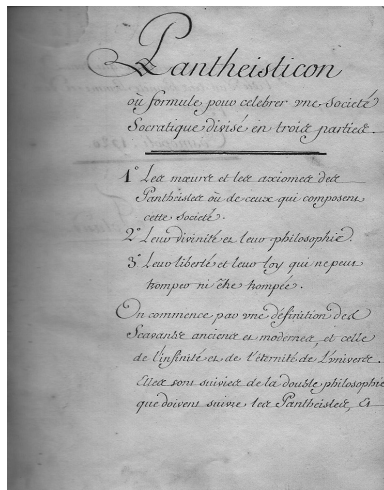 Pantheisticon
où formule, pour celebrer vne Societé
Socratique divisé en trois parties.
1° Les mœurs et les axiomes des
Pantheistes où de ceux qui composent
cette Societé.
2° Leur divinité et leur philosophie.
3° Leur liberté et leur loy qui ne peut
tromper ni être trompée.
On commence, par vne définition des
Scavants anciens et modernes, et celle
de l'infinité et de l'éternité de L'univers.
Elles sont suivies de la double philosophie
que doivent suivre les Pantheistes, et